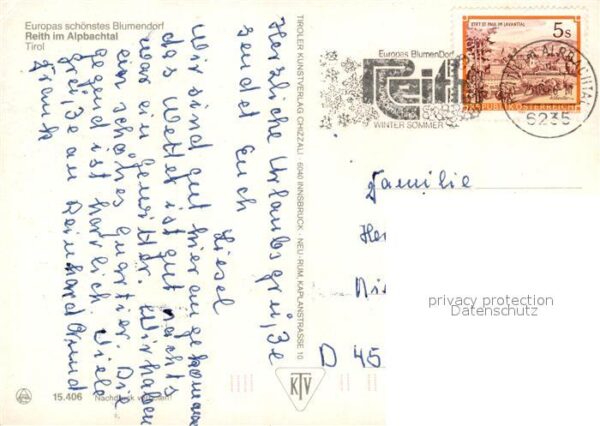 Europas schönstes Blumendorf
Reith im Alpbachtal
Tirol
Herzliche Urlaubsgrüße
sendet Euch
Liesel
Wir sind gut hier angekommen
das Wetter ist gut nachts
war ein Gewitter. Wir haben
ein schönes Quartier. Die
Gegend ist herrlich. Viele
Grüße an Reinhard und
Frank
TIROLER KUNSTVERLAG CHIZZALI · 6040 INNSBRUCK - NEU-RUM, KAPLANSTRASSE 10
KTV
15.406
Nachdruck verboten!
Europas BlumenDorf
Reith
WINTER SOMMER
STIFT ST. PAUL IM LAVANTTAL
5s
REPUBLIK ÖSTERREICH
ALPBACHTAL
6235
Familie
He
D 45
privacy protection
Datenschutz